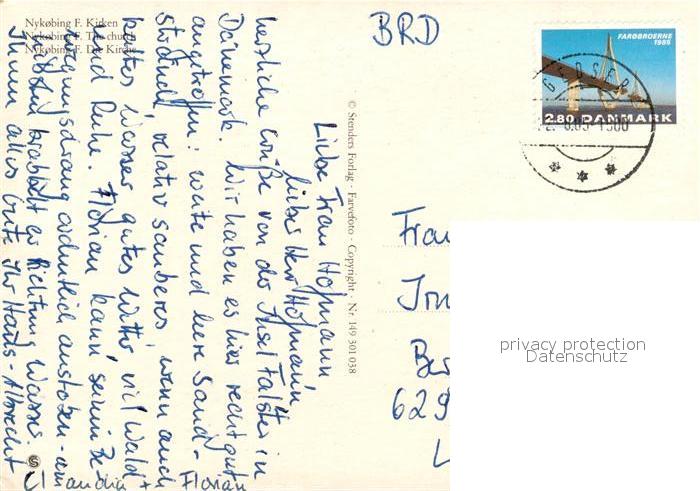 Nykøbing F. Kirken
Nykøbing F. The church
Nykøbing F. Die Kirche
BRD
FARØBROERNE
1985
2.80 DANMARK
GEDSER
© Stenders Forlag - Farvefoto - Copyright - Nr. 149 301 038
Liebe Frau Hofmann
lieber Herr Hofmann,
herzliche Grüße von der Insel Falster in
Dänemark. Wir haben es hier recht gut
angetroffen: weite und leere Sand-
strände, relativ sauberes, wenn auch
kaltes Wasser, gutes Wetter, viel Wald +
und Ruhe. Florian kann seinen Be-
wegungsdrang ordentlich austoben - am
Strand krabbelt er Richtung Wasser.
Ihnen alles Gute Ihr Hans-Albrecht
Claudia Florian
Frau
Ber
629
L
privacy protection
Datenschutz